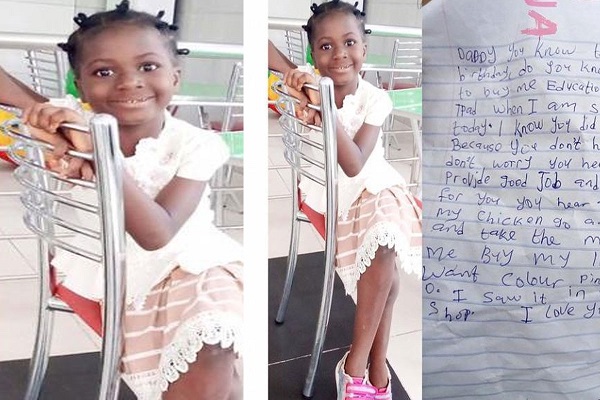 NA
Daddy you know t
birthday, do you kno
to buy me Educatio
IPad when I am s
today. I know you did
Because you don't h
don't worry you hea
Provide good Job and
for you you hear
my chicken go a
and take the m
me Buy my I
want Colour Pin
O. I saw it in
Shop. I love yo